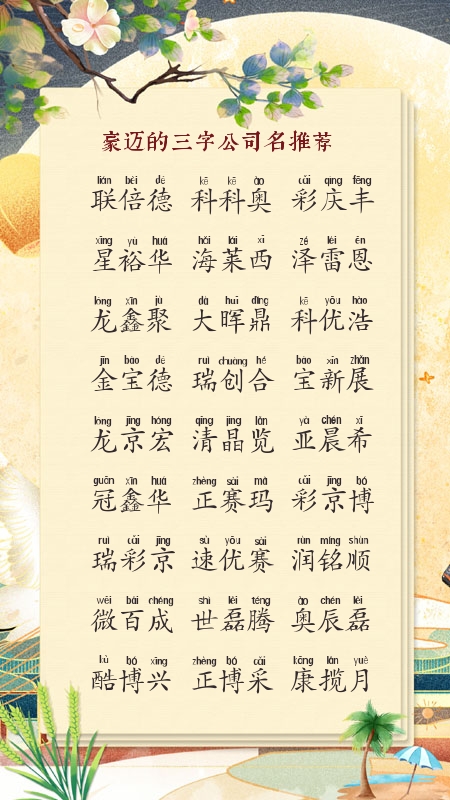 豪迈的三字公司名推荐
lián bèi dé kē kē ào cǎi qìng fēng
联倍德 科科奥 彩庆丰
xīng yù huá hǎi lái xī zé léi ēn
星裕华 海莱西 泽雷恩
lóng xīn jù dà huī dǐng kē yōu hào
龙鑫聚 大晖鼎 科优浩
jīn bǎo dé ruì chuàng hé bǎo xīn zhǎn
金宝德 瑞创合 宝新展
lóng jīng hóng qīng jīng lǎn yà chén xī
龙京宏 清晶览 亚晨希
guān xīn huá zhèng sài mǎ cǎi jīng bó
冠鑫华 正赛玛 彩京博
ruì cǎi jīng sù yōu sài rùn míng shùn
瑞彩京 速优赛 润铭顺
wēi bǎi chéng shì lěi téng ào chén lěi
微百成 世磊腾 奥辰磊
kù bó xīng zhèng bó cǎi kāng lǎn yuè
酷博兴 正博采 康揽月